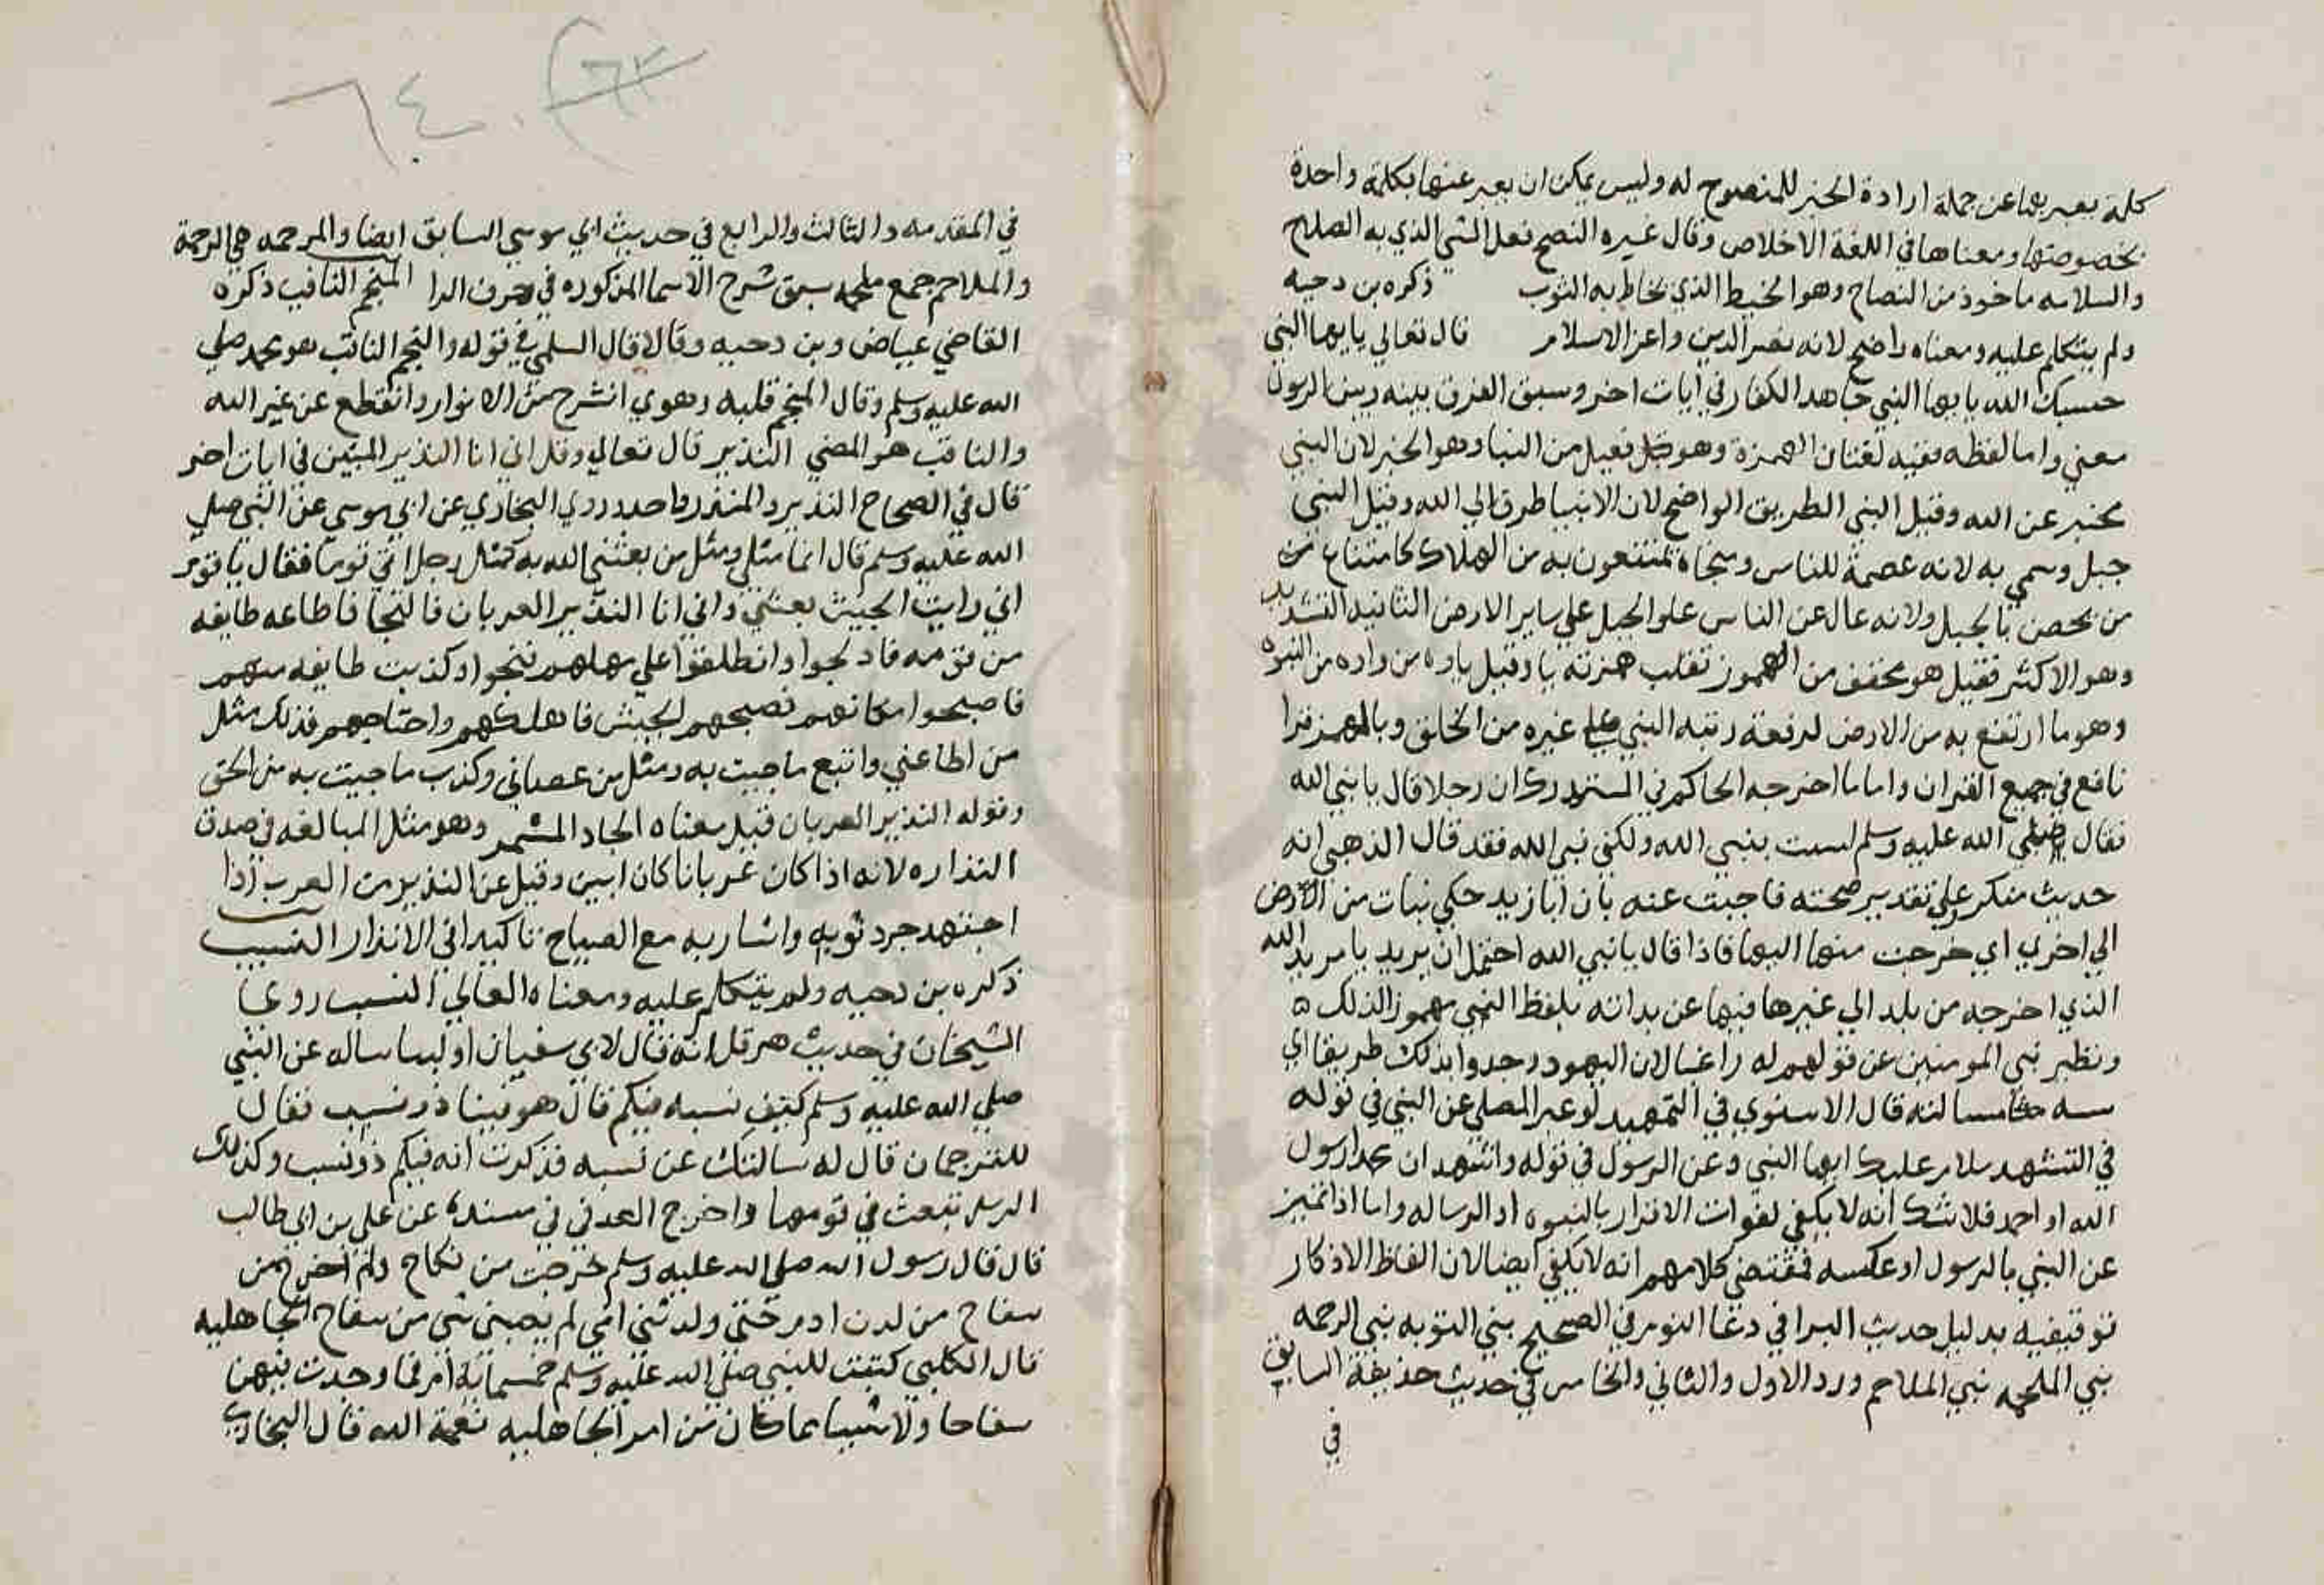 كلمة يعبر بها عن جملة ارادة الخير للمنصوح له وليس يمكن ان يعبر عنها بكلمة واحدة
بخصوصتها ومعناها في اللغة الاخلاص وقال غيره النصح فعل الشي الذي به الصلاح
والسلامه ماخوذ من النصاح وهو الخيط الذي يخاط به الثوب ذكره بن دحيه
ولم يتكلم عليه ومعناه واضح لانه نصر الدين واعز الاسلام قال تعالي يا يها النبي
حسبك الله يا يها النبي جاهد الكفار في ايات اخر وسبق الفرق بينه وبين الرسول
معني واما لفظه ففيه لغتان الهمزة وهو فعيل من النبا وهو الخبر لان النبي
مخبر عن الله وقيل النبي الطريق الواضح لان الانبيا طرق الي الله وقيل النبي
جبل وسمي به لانه عصمة للناس ومنجاة تمتنعون به من الهلاك كامتناع من
من يحصن بالجبل ولانه عال عن الناس علو الجبل علي ساير الارض الثانيه التشديد
وهو الاكثر فقيل هو مخفف من المهموز تقلب همزته يا وقيل ياوه من واو من النبوه
وهو ما ارتفع به من الارض لرفعة رتبه النبي علي غيره من الخلق وبالهمز قرا
نافع في جميع القران واما ما اخرجه الحاكم في المستدرك ان رجلا قال يا نبي الله
فقال صلي الله عليه وسلم لست بنبي الله ولكني نبي الله فقد قال الذهبي انه
حديث منكر وعلي تقدير صحته فاجيب عنه بان ابا زيد حكي نبات من الارض
الي اخري اي خرجت منها اليها فاذا قال يا نبي الله احتمل ان يريد يا مريد الله
الذي اخرجه من بلد الي غيرها فنهاه عن ندائه بلفظ النبي مهموزا لذلك ٥
ونظير نهي المومنين عن قولهم له راعنا لان اليهود وجدوا بذلك طريقا اي
سبه قال الاسنوي في التمهيد لو عبر المصلي عن النبي في قوله
في التشهد سلام عليك ايها النبي وعن الرسول في قوله واشهد ان محمدا رسول
الله او احمد فلا شك انه لا يكفي لفوات الاقرار بالنبوه او الرساله واما اذا
عن النبي بالرسول او عكسه فمقتضي كلامهم انه لا يكفي ايضا لان الفاظ الاذكار
توقيفيه بدليل حديث البرا في دعا النوم في الصحيح نبي التوبه نبي الرحمه
نبي الملحمه نبي الملاحم ورد الاول والثاني والخامس في حديث حذيفة السابق
في
٦٣
٦٤
في المقدمه والثالث والرابع في حديث ابي موسي السابق ايضا والمرحمه هي الرحمة
والملاحم جمع ملحمه سبق شرح الاسما المذكوره في حرف الرا النجم الثاقب ذكره
القاضي عياض وبن دحيه وقالا قال السلمي في قوله والنجم الثاقب هو محمد صلي
الله عليه وسلم وقال النجم قلبه وهوي انشرح من الانوار وانقطع عن غير الله
والثاقب هو المضي النذير قال تعالي وقل اني انا النذير المبين في ايات اخر
قال في الصحاح النذير والمنذر واحد وروي البخاري عن ابي موسي عن النبي صلي
الله عليه وسلم قال انما مثلي ومثل من بعثني الله به كمثل رجل اتي قوما فقال يا قوم
اني رايت الجيش بعيني واني انا النذير العريان فالنجا فاطاعه طايفه
من قومه فادلجوا وانطلقوا علي مهلهم فنجوا وكذبت طايفه منهم
فاصبحوا مكانهم فصبحهم الجيش فاهلكهم واجتاحهم فذلك مثل
من اطاعني واتبع ما جيت به ومثل من عصاني وكذب ما جيت به من الحق
وقوله النذير العريان قيل معناه الجاد المشمر وهو مثل المبالغه في صدق
النذاره لانه اذا كان عريانا كان ابين وقيل عن النذير من العرب اذا
اجتهد جرد ثوبه واشار به مع الصياح تاكيدا في الانذار النسيب
ذكره بن دحيه ولم يتكلم عليه ومعناه العالي النسب روينا
الشيخان في حديث هرقل انه قال لابي سفيان اول ما ساله عن النبي
صلي الله عليه وسلم كيف نسبه فيكم قال هو فينا ذو نسب فقال
للترجمان قال له سالتك عن نسبه فذكرت انه فيكم ذو نسب وكذلك
الرسل تبعث في قومها واخرج العدني في مسنده عن علي بن ابي طالب
قال قال رسول الله صلي الله عليه وسلم خرجت من نكاح ولم اخرج من
سفاح من لدن ادم حتي ولدتني امي لم يصبني شي من سفاح الجاهليه
قال الكلبي كتبت للنبي صلي الله عليه وسلم خمسمائة ام فما وجدت فيهن
سفاحا ولا شيئا مما كان من امر الجاهليه نعمة الله قال البخاري